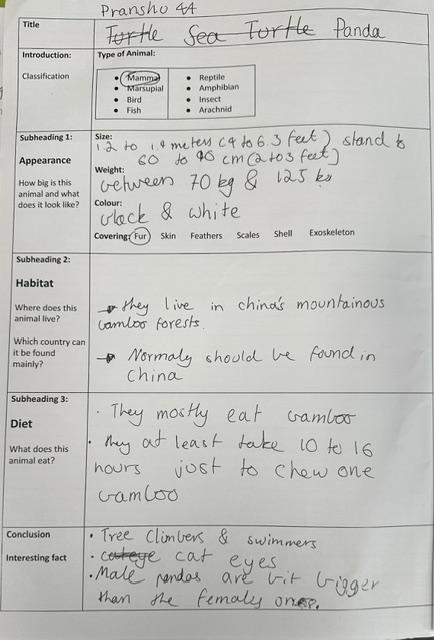 Pranshu 4A
Title
Turtle Sea Turtle Panda
Introduction:
Type of Animal:
Classification
• Mammal
• Marsupial
• Bird
• Fish
• Reptile
• Amphibian
• Insect
• Arachnid
Subheading 1:
Appearance
How big is this
animal and what
does it look like?
Size:
1.2 to 1.9 meters (4 to 6.3 feet) stand to
60 to 90 cm (2 to 3 feet)
Weight:
between 70 kg & 125 kg
Colour:
black & white
Covering: Fur Skin Feathers Scales Shell Exoskeleton
Subheading 2:
Habitat
Where does this
animal live?
Which country can
it be found
mainly?
→ they live in china's mountainous
bamboo forests.
→ Normaly should be found in
China
Subheading 3:
Diet
What does this
animal eat?
• They mostly eat bamboo
• they at least take 10 to 16
hours just to chew one
bamboo
Conclusion
Interesting fact
• Tree Climbers & swimmers
• cat eyes
• Male pandas are bit bigger
than the femaly ones.